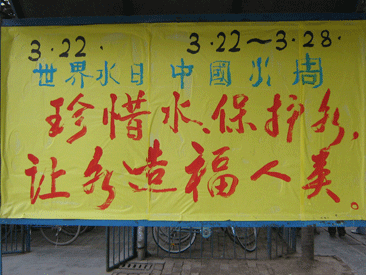 3.22. 3.22～3.28.
世界水日 中國水周
珍惜水、保护水,
让水造福人类。